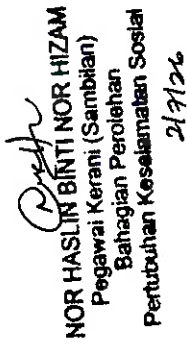 NOR HASLIN BINTI NOR HIZAM
Pegawai Kerani (Sambilan)
Bahagian Perolehan
Pertubuhan Keselamatan Sosial
2/7/26